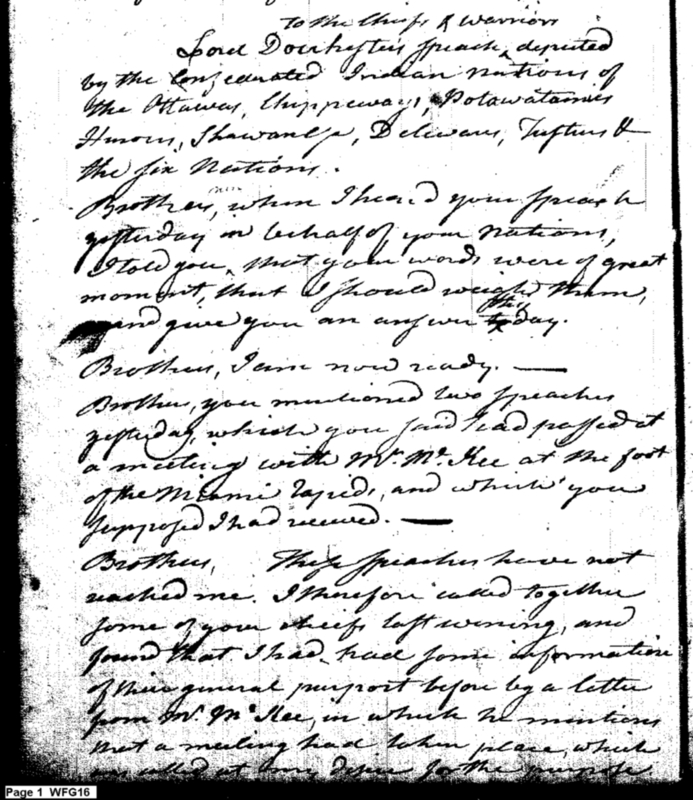 To the Chiefs & Warriors
Lord Dorchesters Speach deputed
by the Confederated Indian Nations of
the Ottawas, Chippeways, Potawatamies
Hurons, Shawanese, Delewars, Tusturs &
the Six Nations.
Brothers, when I heard your Speach
yesterday on behalf of your Nations,
I told you, that your words were of great
moment, that I should weigh them,
and give you an answer this day.
Brothers, I am now ready. —
Brothers, you mentioned two Speaches
yesterday, which you said had passed at
a meeting with Mr. McKee at the foot
of the Miami Rapids, and which you
supposed I had received. —
Brothers, These Speaches have not
reached me. I therefore called together
some of your chiefs last evening, and
found that I had, had some information
of their general purport before by a letter
from Mr. McKee, in which he mentions
that a meeting had taken place, which
was called at for the purpose
Page 1 WFG16